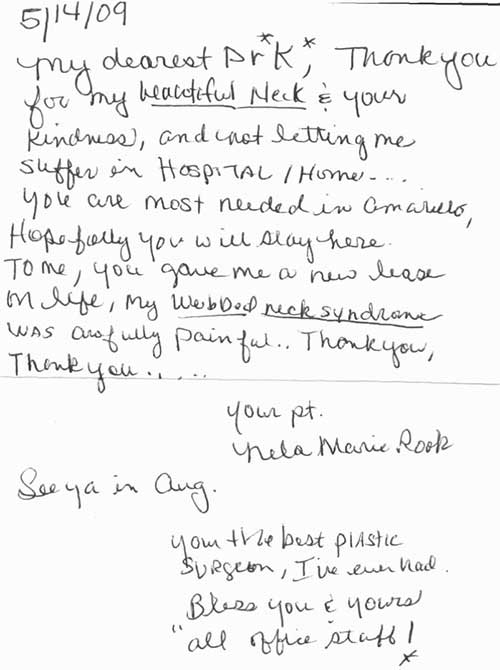 5/14/09
My dearest Dr*K*, Thank you
for my beautiful Neck & your
kindness, and not letting me
suffer in HOSPITAL / Home....
You are most needed in Amarillo,
Hopefully you will stay here.
To me, you gave me a new lease
on life, my webbed neck syndrome
was awfully painful.. Thank you,
Thank you.....
your pt.
Marie Rook
See ya in Aug.
your the best plastic
surgeon, I've ever had.
Bless you & yours
"all office staff!
*